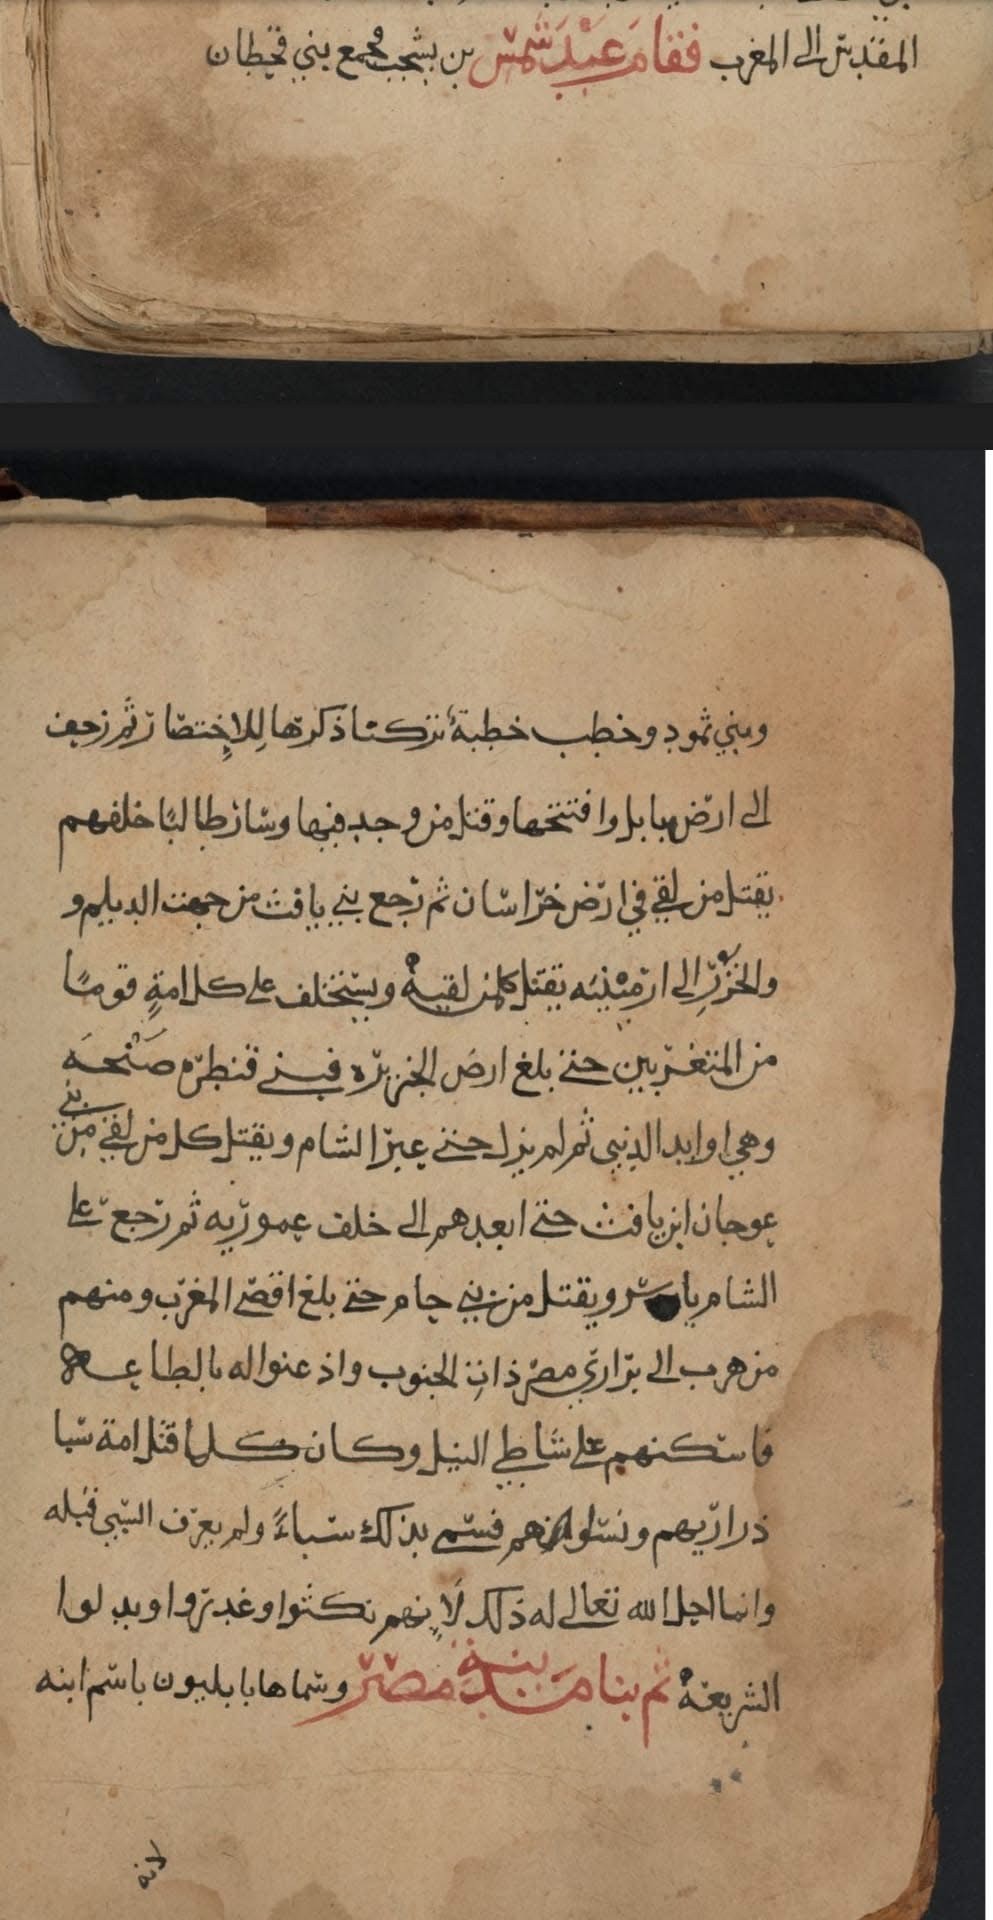 المقدس الى المغرب فقام عبد شمس بن يشجب فجمع بني قحطان
وبني ثمود وخطب خطبة تركنا ذكرها للاختصار ثم زحف
الى ارض بابل وافتتحها وقتل من وجد فيها وسار طالبا خلفهم
يقتل من لقي في ارض خراسان ثم رجع بني يافث من جهت الديلم و
والخزر الى ارمينيه يقتل كلمن لقيه ويستخلف على كل امة قوما
من المتغربين حتى بلغ ارض الجزيره فبنى قنطره صنحه
وهي اوابد الدنيى ثم لم يزل حتى عبر الشام ويقتل كل من لقي من بني
عوجان ابن يافث حتى ابعدهم الى خلف عموريه ثم رجع على
الشام ياسر ويقتل من بني حام حتى بلغ اقصى المغرب ومنهم
من هرب الى براري مصر ذات الجنوب واذعنوا له بالطاعه
فاسكنهم على شاطي النيل وكان كلما قتل امة سبا
ذراريهم ونسوانهم فسمي بذلك سباء ولم يعرف السبي قبله
وانما احل الله تعالى له ذلك لانهم نكثوا وغدروا وبدلوا
الشريعة ثم بنا مدينة مصر وسماها بابليون باسم ابنه
لانه